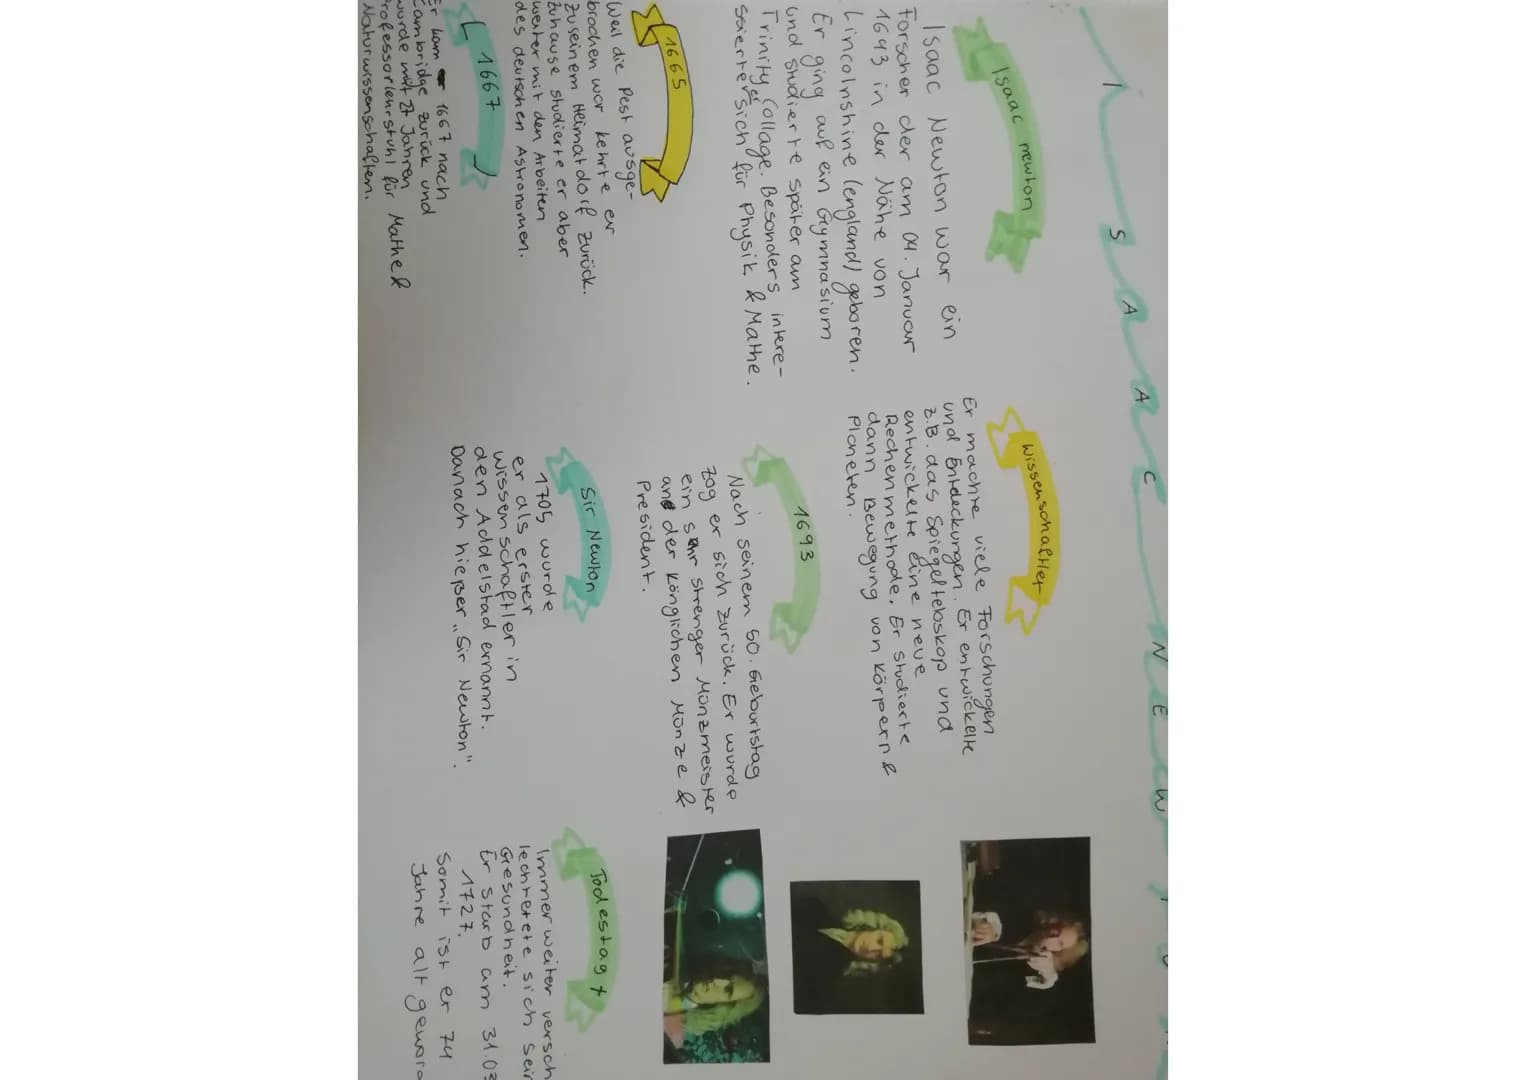 ISAAC NEW
Isaac newton
Isaac Newton war ein
Forscher der am 04. Januar
1693 in der Nähe von
Lincolnshine (england) geboren.
Er ging auf ein Gymnasium
und studierte später am
Trinity Collage. Besonders intere-
ssierte er sich für Physik & Mathe.
1665
Weil die Pest ausge-
brochen war kehrte er
zu seinem Heimatdorf zurück.
Zuhause studierte er aber
weiter mit den Arbeiten
des deutschen Astronomen.
1667
Er kam 1667 nach
Cambridge zurück und
wurde mit 27 Jahren
Professorlehrstuhl für Mathe &
Naturwissenschaften.
Wissenschaftler
Er machte viele Forschungen
und Entdeckungen. Er entwickelte
z.B. das Spiegelteloskop und
entwickelte eine neue
Rechenmethode. Er studierte
dann Bewegung von Körpern &
Planeten.
1693
Nach seinem 50. Geburtstag
zog er sich zurück. Er wurde
ein sehr strenger Münzmeister
an der Könglichen Münze &
President.
Sir Newton
1705 wurde
er als erster
wissenschaftler in
den Addelstad ernannt.
Danach hieß er "Sir Newton".
Todestag †
Immer weiter versch
lechterte sich sein
Gesundheit.
Er starb am 31.03
1727.
Somit ist er 74
Jahre alt geword